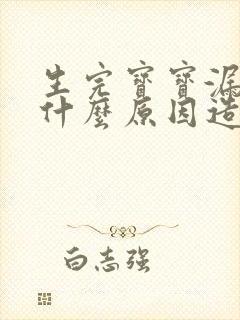 生完寶寶漏
什麼原因造
白志强